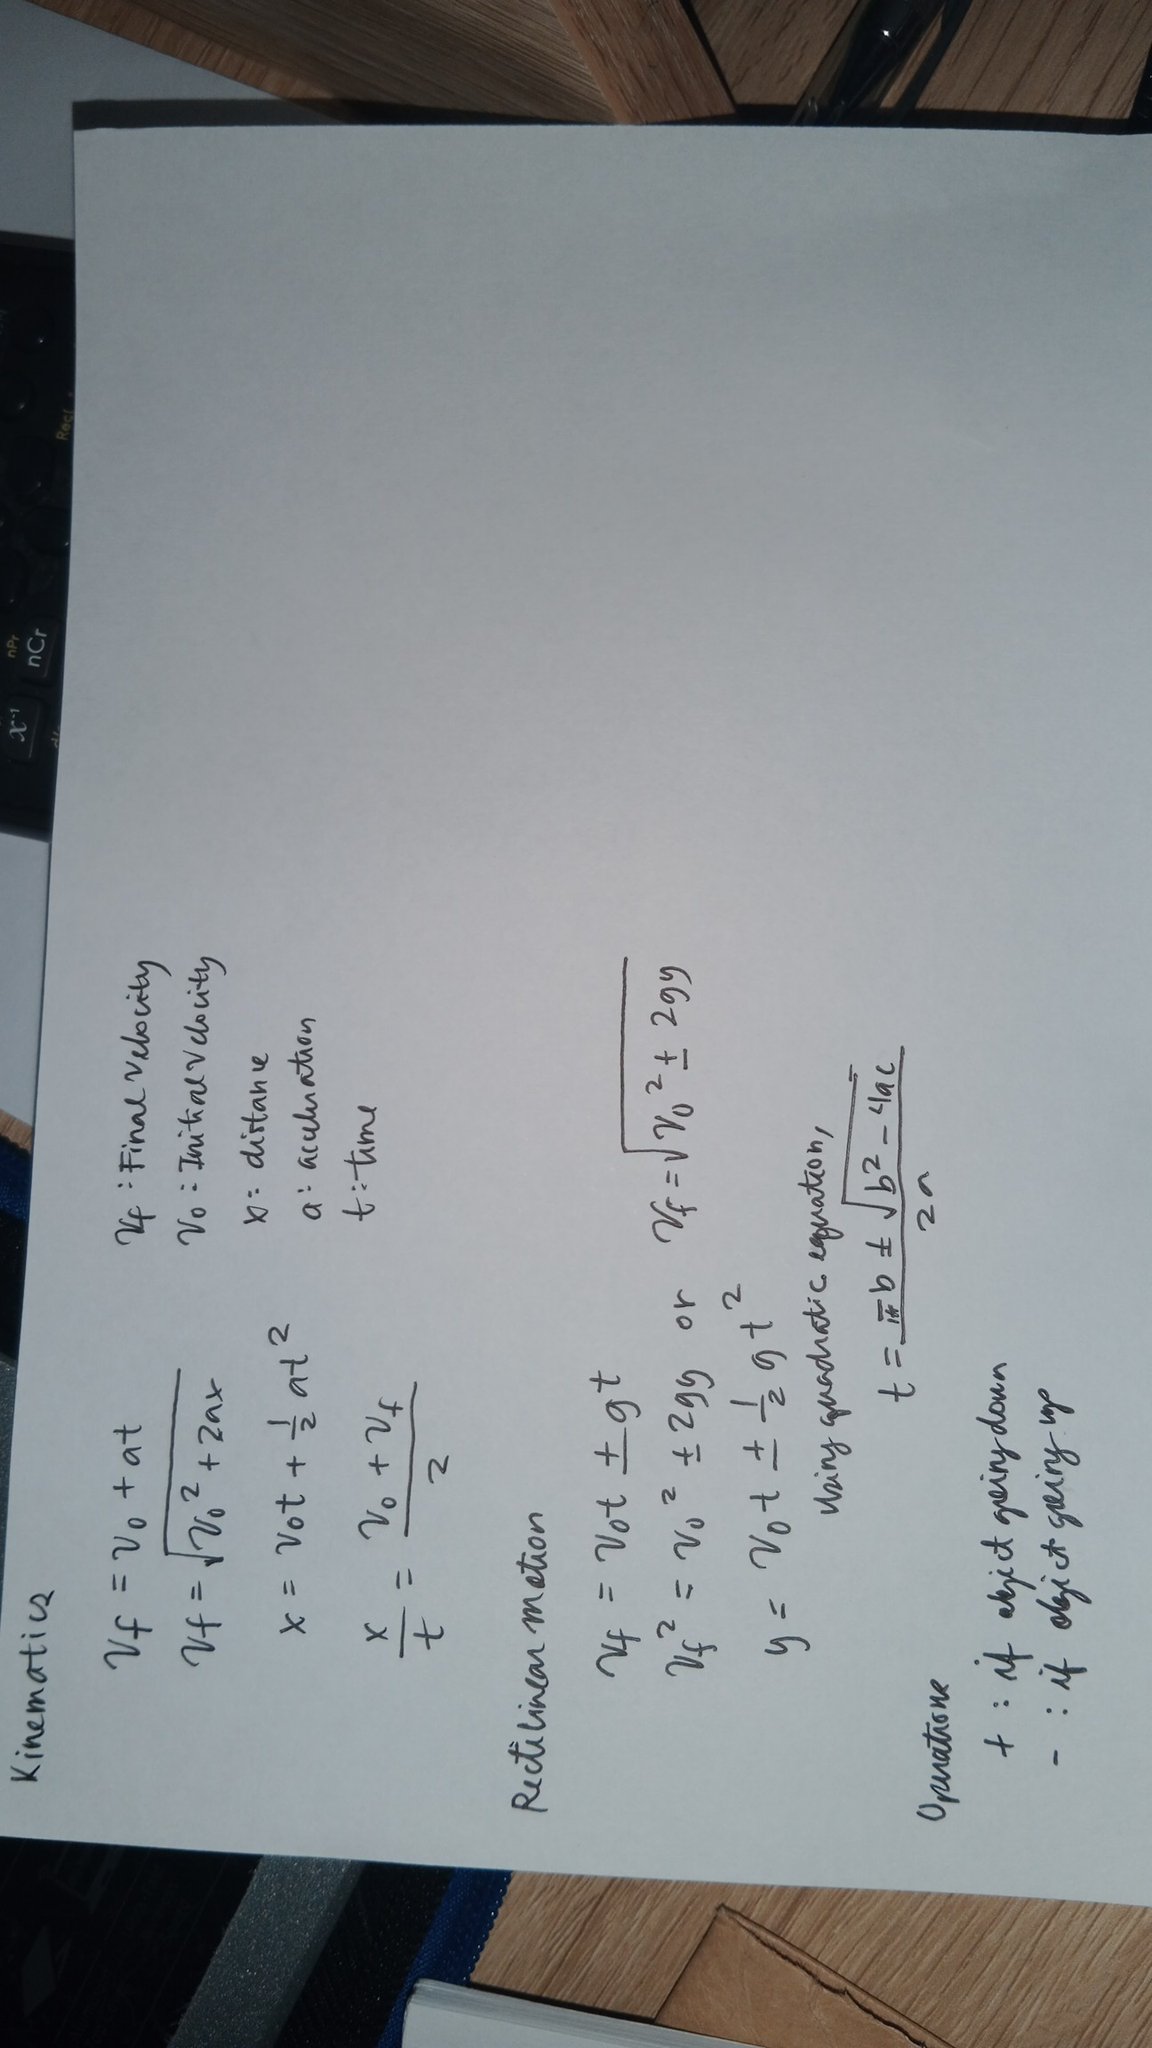 Kinematics
Vf = V0 + at
Vf : Final velocity
Vf = √(V0² + 2ax)
V0 : Initial velocity
x = V0t + 1/2 at²
x : distance
a : acceleration
x/t = (V0 + Vf)/2
t : time
Rectilinear motion
Vf = V0t ± gt
Vf² = V0² ± 2gy or Vf = √(V0² ± 2gy)
y = V0t ± 1/2 gt²
Using quadratic equation,
t = (-b ± √(b² - 4ac))/2a
Operations
+ : if object going down
- : if object going up
x⁻¹
nPr
nCr